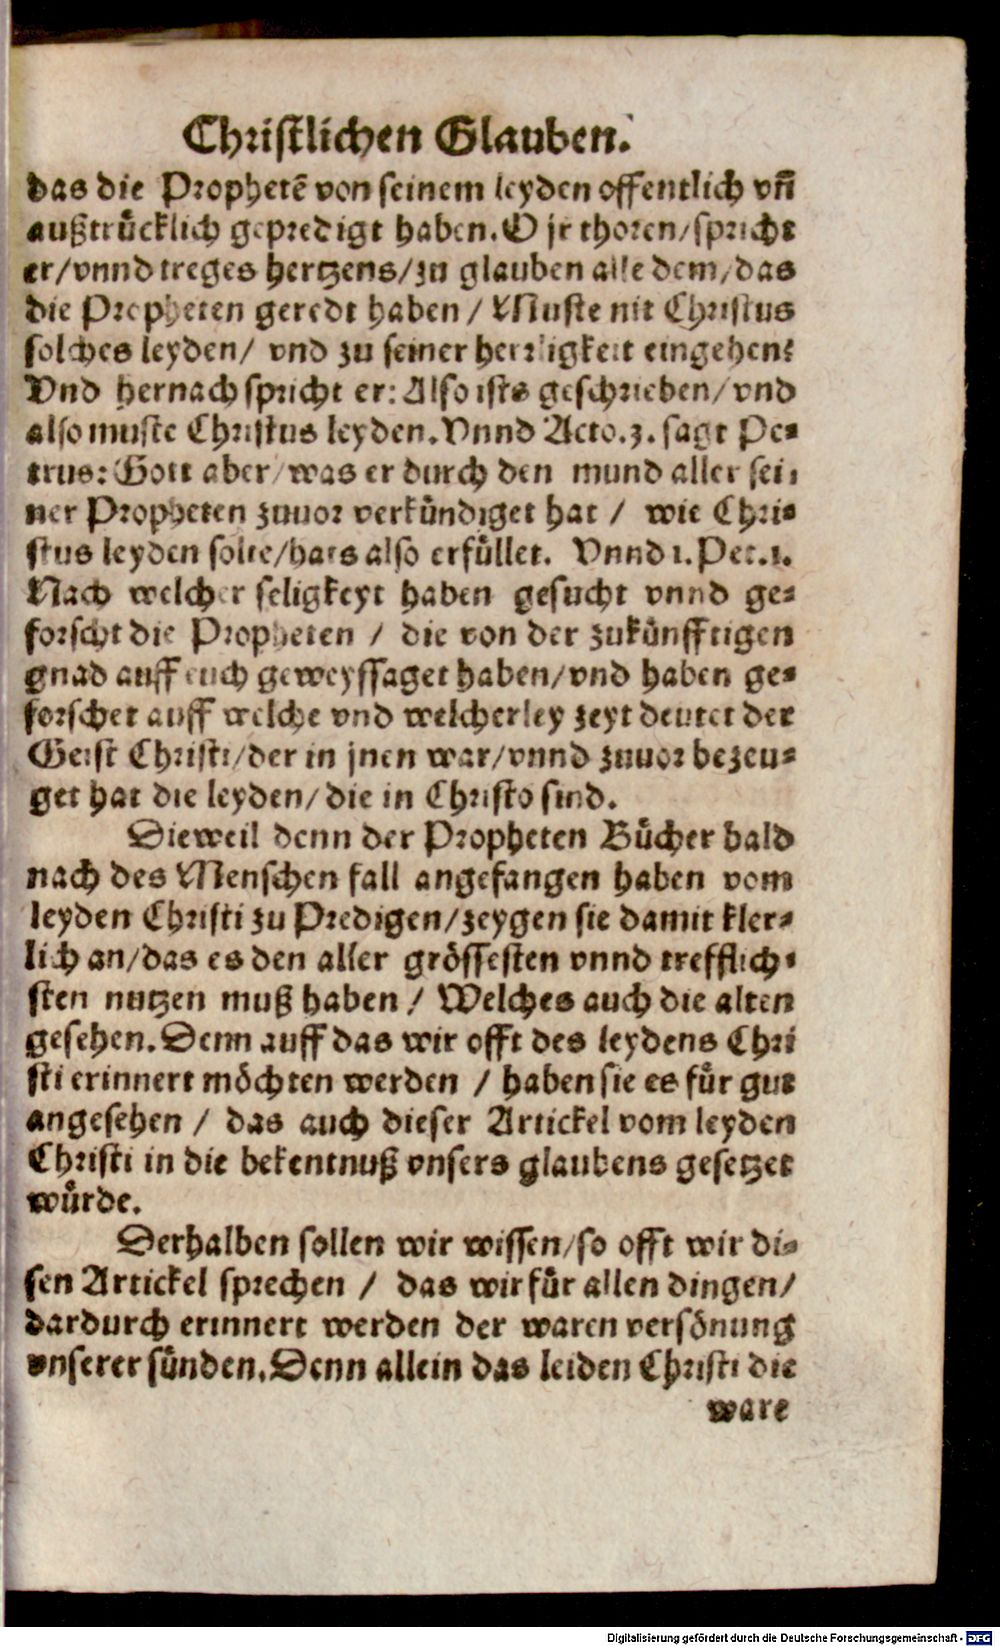 Christlichen Glauben.
das die Prophetē von seinem leyden offentlich vn̄
außtrücklich gepredigt haben. O jr thoren/spricht
er/vnnd treges hertzens/zu glauben alle dem/das
die Propheten geredt haben / Muste nit Christus
solches leyden/ vnd zu seiner herrligkeit eingehen?
Vnd hernach spricht er: Also ists geschrieben/vnd
also muste Christus leyden. Vnnd Acto.3. sagt Pe-
trus: Gott aber/was er durch den mund aller sei-
ner Propheten zuuor verkündiget hat / wie Chri-
stus leyden solte/hats also erfüllet. Vnnd 1.Pet.1.
Nach welcher seligkeyt haben gesucht vnnd ge-
forscht die Propheten / die von der zukünfftigen
gnad auff euch geweyssaget haben/vnd haben ge-
forschet auff welche vnd welcherley zeyt deutet der
Geist Christi/der in jnen war/vnnd zuuor bezeu-
get hat die leyden/die in Christo sind.
Dieweil denn der Propheten Bücher bald
nach des Menschen fall angefangen haben vom
leyden Christi zu Predigen/zeygen sie damit kler-
lich an/das es den aller grössesten vnnd trefflich-
sten nutzen muß haben / Welches auch die alten
gesehen. Denn auff das wir offt des leydens Chri
sti erinnert möchten werden / haben sie es für gut
angesehen / das auch dieser Artickel vom leyden
Christi in die bekentnuß vnsers glaubens gesetzet
würde.
Derhalben sollen wir wissen/so offt wir di-
sen Artickel sprechen / das wir für allen dingen/
dardurch erinnert werden der waren versönung
vnserer sünden. Denn allein das leiden Christi die
ware
Digitalisierung gefördert durch die Deutsche Forschungsgemeinschaft - DFG